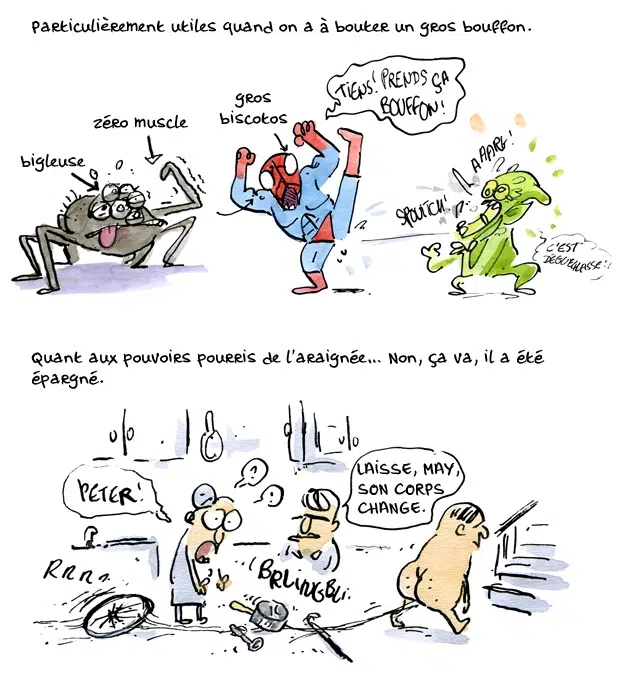 Particulièrement utiles quand on a à bouter un gros bouffon.
gros
biscotos
zéro muscle
bigleuse
TIENS! PRENDS ÇA
BOUFFON!
AAARG!
SPOUITCH!
C'EST
DÉGUEULASSE!
Quant aux pouvoirs pourris de l'araignée... Non, ça va, il a été
épargné.
PETER!
?
?
LAISSE, MAY,
SON CORPS
CHANGE.
RRRR
BRLINGBLI